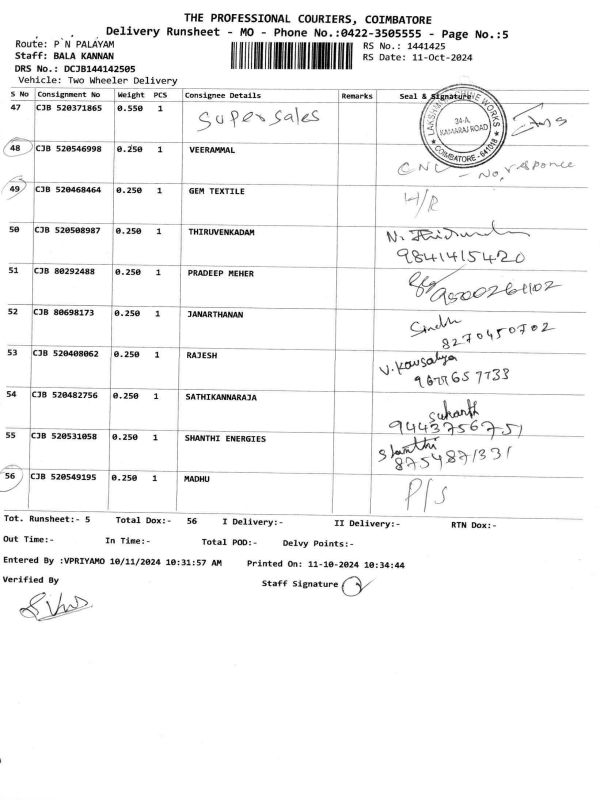 THE PROFESSIONAL COURIERS, COIMBATORE
Delivery Runsheet - MO - Phone No.:0422-3505555 - Page No.:5
Route: P`N PALAYAM
RS No.: 1441425
Staff: BALA KANNAN
RS Date: 11-Oct-2024
DRS No.: DCJB144142505
Vehicle: Two Wheeler Delivery
S No Consignment No Weight PCS Consignee Details Remarks Seal & Signature
47 CJB 520371865 0.550 1 Super sales
34-A, KAMARAJ ROAD
COIMBATORE - 641018
48 CJB 520546998 0.250 1 VEERAMMAL
CNC - No, response
49 CJB 520468464 0.250 1 GEM TEXTILE
50 CJB 520508987 0.250 1 THIRUVENKADAM
9841415420
51 CJB 80292488 0.250 1 PRADEEP MEHER
52 CJB 80698173 0.250 1 JANARTHANAN
8270450702
53 CJB 520408062 0.250 1 RAJESH
V. Kowsalya
54 CJB 520482756 0.250 1 SATHIKANNARAJA
9443756751
55 CJB 520531058 0.250 1 SHANTHI ENERGIES
Shanthi
8754871331
56 CJB 520549195 0.250 1 MADHU
P/S
Tot. Runsheet:- 5 Total Dox:- 56 I Delivery:- II Delivery:- RTN Dox:-
Out Time:- In Time:- Total POD:- Delvy Points:-
Entered By :VPRIYAMO 10/11/2024 10:31:57 AM Printed On: 11-10-2024 10:34:44
Verified By
Staff Signature